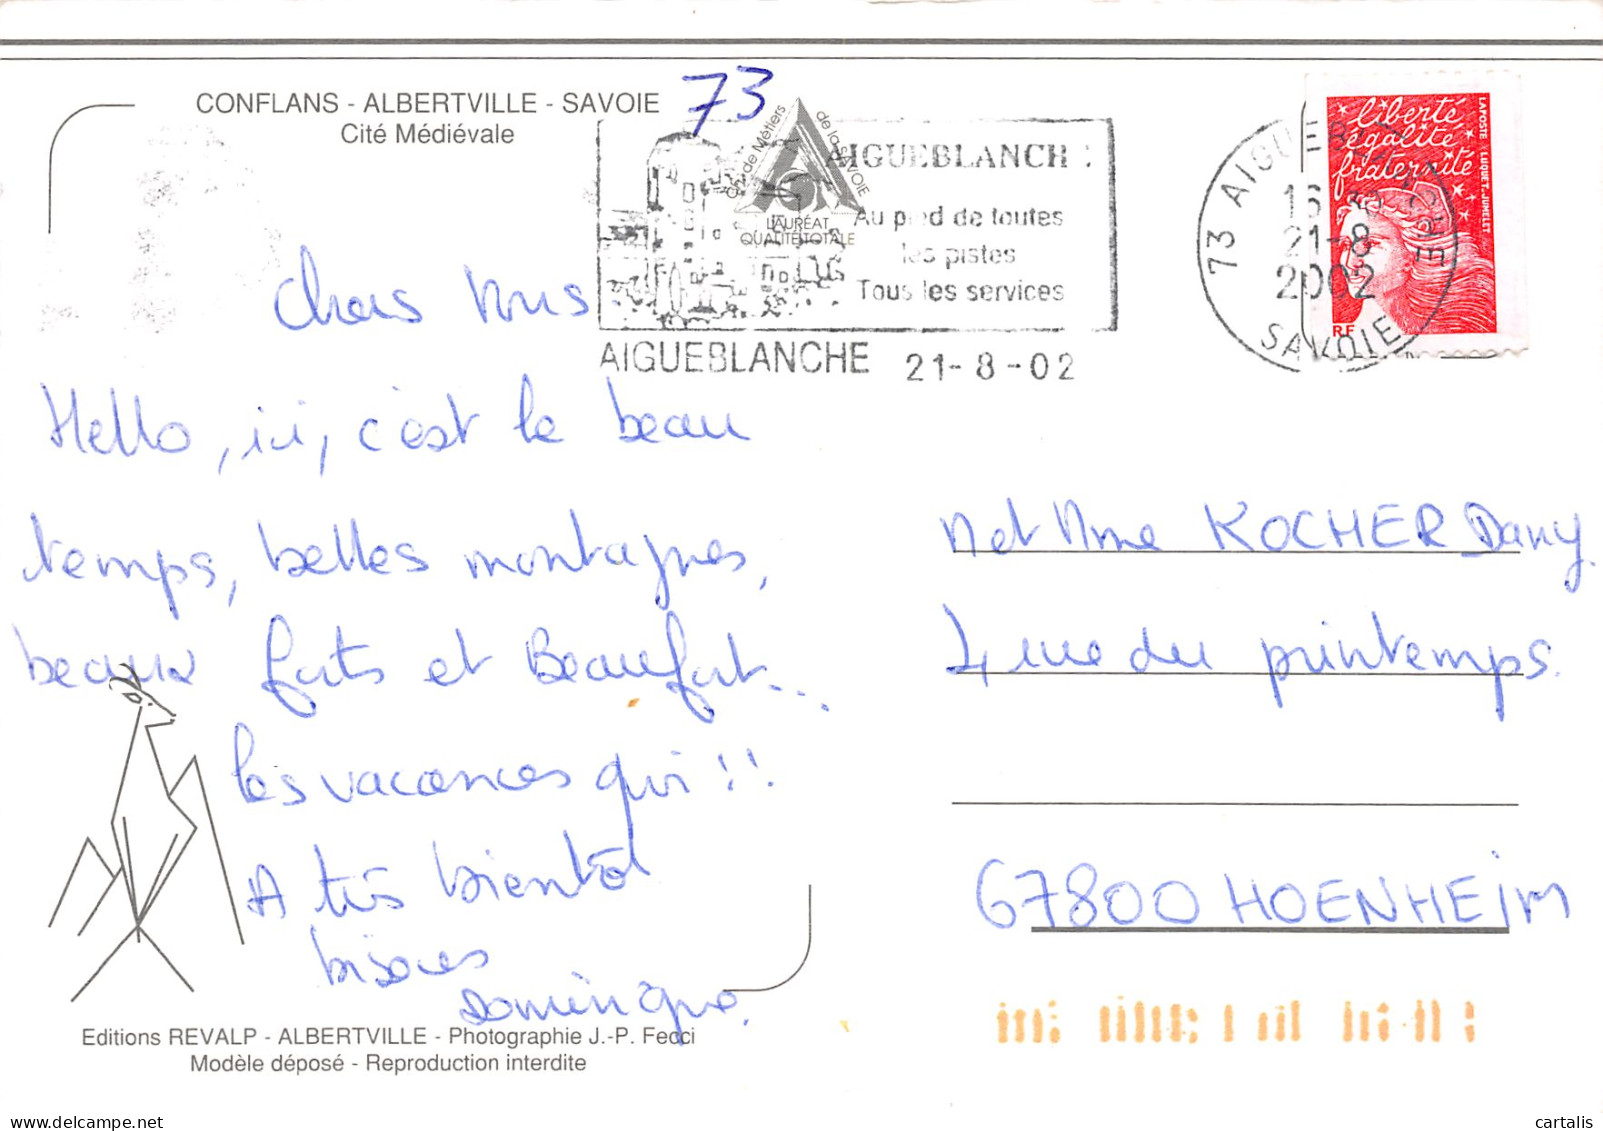 CONFLANS - ALBERTVILLE - SAVOIE
Cité Médiévale
73
de Métiers de la SAVOIE
LAURÉAT
QUALITÉ TOTALE
AIGUEBLANCH
Au pied de toutes
les pistes
Tous les services
AIGUEBLANCHE 21-8-02
73 AIGUEBLANCHE
21-8
2002
SAVOIE
liberté
égalité
fraternité
LA POSTE LUQUET-JUMELET
RF
Chers Nous
Hello, ici, c'est le beau
temps, belles montagnes,
beaux forts et Beaufort...
les vacances qui !!
A très bientôt
bisous
Dominique.
M et Mme KOCHER Dany.
4 rue du printemps.
67800 HOENHEIM
Editions REVALP - ALBERTVILLE - Photographie J.-P. Fecci
Modèle déposé - Reproduction interdite
www.delcampe.net
cartalis